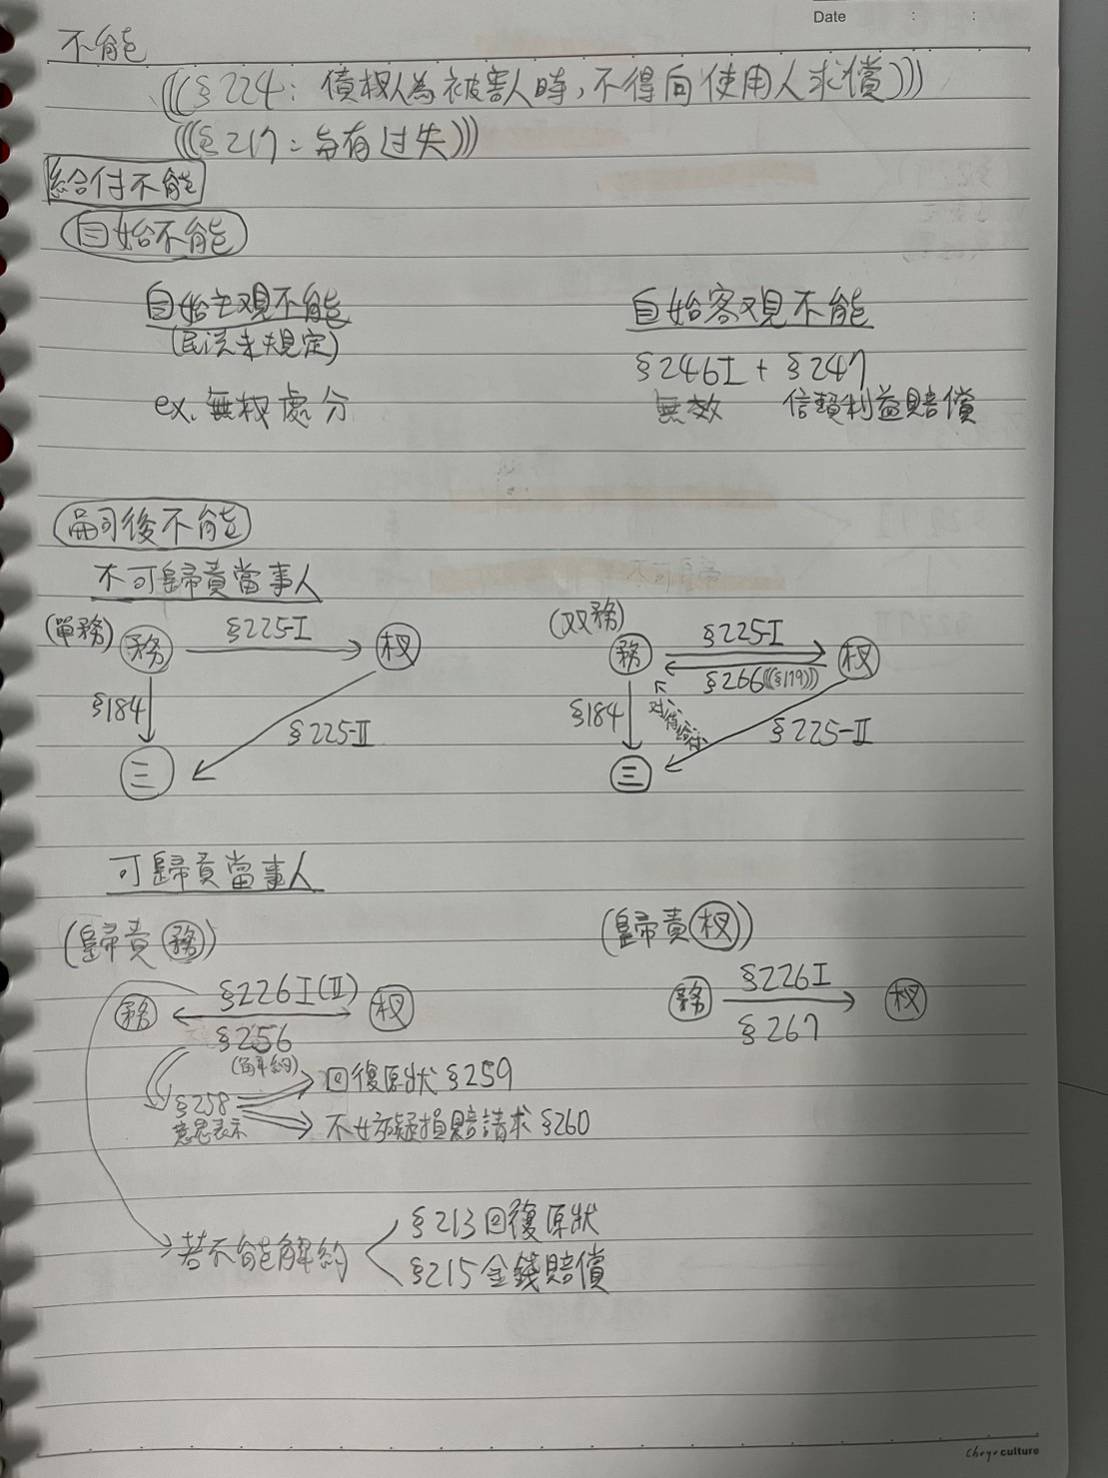 Date : :
不能
(((§224：債权人為被害人時，不得向使用人求償)))
(((§217：与有过失)))
給付不能
自始不能
自始主观不能
(民法未規定)
ex. 無权處分
自始客观不能
§246I + §247
無效 信賴利益賠償
嗣後不能
不可歸責當事人
(單務) 務 §225-I 权
§184
§225-II
三
(双務) 務 §225-I 权
§266(((§179)))
§184 对待給付 §225-II
三
可歸責當事人
(歸責務)
務 §226I(II) 权
§256
(解約)
§258
意思表示
回復原狀 §259
不妨礙損賠請求 §260
若不能解約
§213 回復原狀
§215 金錢賠償
(歸責权)
務 §226I 权
§267
Choyo culture